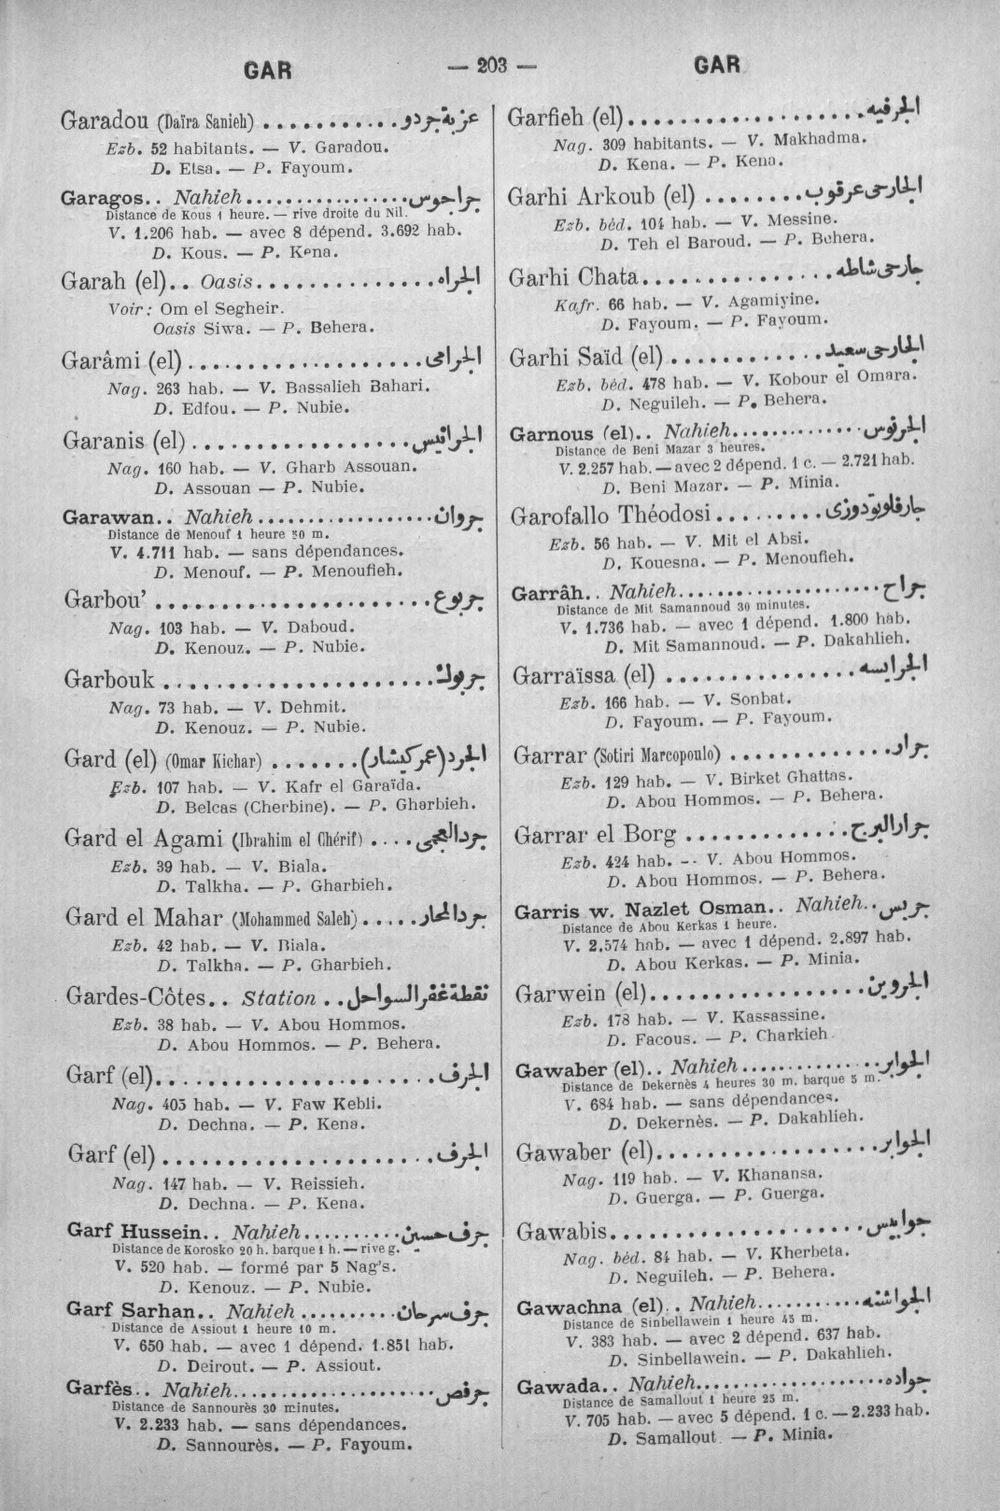 GAR — 203 — GAR
Garadou (Daïra Sanieh) ............ عزبة جردو
Ezb. 52 habitants. — V. Garadou.
D. Etsa. — P. Fayoum.
Garagos.. Nahieh ................. جراجوس
Distance de Kous 1 heure. — rive droite du Nil.
V. 1.206 hab. — avec 8 dépend. 3.692 hab.
D. Kous. — P. Kena.
Garah (el).. Oasis ............... الجراه
Voir : Om el Segheir.
Oasis Siwa. — P. Behera.
Garâmi (el) ................... الجرامى
Nag. 263 hab. — V. Bassalieh Bahari.
D. Edfou. — P. Nubie.
Garanis (el) ................. الجرانيس
Nag. 160 hab. — V. Gharb Assouan.
D. Assouan — P. Nubie.
Garawan.. Nahieh ................ جروان
Distance de Menouf 1 heure 50 m.
V. 4.711 hab. — sans dépendances.
D. Menouf. — P. Menoufieh.
Garbou' ...................... جربوع
Nag. 103 hab. — V. Daboud.
D. Kenouz. — P. Nubie.
Garbouk ...................... جربوك
Nag. 73 hab. — V. Dehmit.
D. Kenouz. — P. Nubie.
Gard (el) (Omar Kichar) ....... الجرد (عمر كيشار)
Ezb. 107 hab. — V. Kafr el Garaïda.
D. Belcas (Cherbine). — P. Gharbieh.
Gard el Agami (Ibrahim el Chérif) .... جرد العجمى
Ezb. 39 hab. — V. Biala.
D. Talkha. — P. Gharbieh.
Gard el Mahar (Mohammed Saleh) ..... جرد المحار
Ezb. 42 hab. — V. Biala.
D. Talkha. — P. Gharbieh.
Gardes-Côtes.. Station .. نقطة غفر السواحل
Ezb. 38 hab. — V. Abou Hommos.
D. Abou Hommos. — P. Behera.
Garf (el)....................... الجرف
Nag. 405 hab. — V. Faw Kebli.
D. Dechna. — P. Kena.
Garf (el) ...................... الجرف
Nag. 147 hab. — V. Reissieh.
D. Dechna. — P. Kena.
Garf Hussein.. Nahieh .......... جرف حسين
Distance de Korosko 20 h. barque 1 h. — rive g.
V. 520 hab. — formé par 5 Nag's.
D. Kenouz. — P. Nubie.
Garf Sarhan.. Nahieh .......... جرف سرحان
Distance de Assiout 1 heure 10 m.
V. 650 hab. — avec 1 dépend. 1.851 hab.
D. Deirout. — P. Assiout.
Garfès.. Nahieh.................. جرفص
Distance de Sannourès 30 minutes.
V. 2.233 hab. — sans dépendances.
D. Sannourès. — P. Fayoum.
Garfieh (el)..................... الجرفيه
Nag. 309 habitants. — V. Makhadma.
D. Kena. — P. Kena.
Garhi Arkoub (el) ........ الجارحى عرقوب
Ezb. béd. 104 hab. — V. Messine.
D. Teh el Baroud. — P. Behera.
Garhi Chata............... جارحى شاطه
Kafr. 66 hab. — V. Agamiyine.
D. Fayoum. — P. Fayoum.
Garhi Saïd (el) ............ الجارحى سعيد
Ezb. béd. 478 hab. — V. Kobour el Omara.
D. Neguileh. — P. Behera.
Garnous (el).. Nahieh.............. الجرنوس
Distance de Beni Mazar 3 heures.
V. 2.257 hab. — avec 2 dépend. 1 c. — 2.721 hab.
D. Beni Mazar. — P. Minia.
Garofallo Théodosi......... جارفلو يودوزى
Ezb. 56 hab. — V. Mit el Absi.
D. Kouesna. — P. Menoufieh.
Garrâh.. Nahieh.................. جراح
Distance de Mit Samannoud 30 minutes.
V. 1.736 hab. — avec 1 dépend. 1.800 hab.
D. Mit Samannoud. — P. Dakahlieh.
Garraïssa (el) ................. الجرايسه
Ezb. 166 hab. — V. Sonbat.
D. Fayoum. — P. Fayoum.
Garrar (Sotiri Marcopoulo) ............. جرار
Ezb. 129 hab. — V. Birket Ghattas.
D. Abou Hommos. — P. Behera.
Garrar el Borg ............. جرار البرج
Ezb. 424 hab. -- V. Abou Hommos.
D. Abou Hommos. — P. Behera.
Garris w. Nazlet Osman.. Nahieh.. جريس
Distance de Abou Kerkas 1 heure.
V. 2.574 hab. — avec 1 dépend. 2.897 hab.
D. Abou Kerkas. — P. Minia.
Garwein (el)................... الجروين
Ezb. 178 hab. — V. Kassassine.
D. Facous. — P. Charkieh
Gawaber (el).. Nahieh ............. الجوابر
Distance de Dekernès 4 heures 30 m. barque 5 m.
V. 684 hab. — sans dépendances.
D. Dekernès. — P. Dakahlieh.
Gawaber (el)................... الجوابر
Nag. 119 hab. — V. Khanansa.
D. Guerga. — P. Guerga.
Gawabis..................... جوابيس
Nag. béd. 84 hab. — V. Kherbeta.
D. Neguileh. — P. Behera.
Gawachna (el).. Nahieh........... الجواشنه
Distance de Sinbellawein 1 heure 45 m.
V. 383 hab. — avec 2 dépend. 637 hab.
D. Sinbellawein. — P. Dakahlieh.
Gawada.. Nahieh.................. جواده
Distance de Samallout 1 heure 25 m.
V. 705 hab. — avec 5 dépend. 1 c. — 2.233 hab.
D. Samallout. — P. Minia.